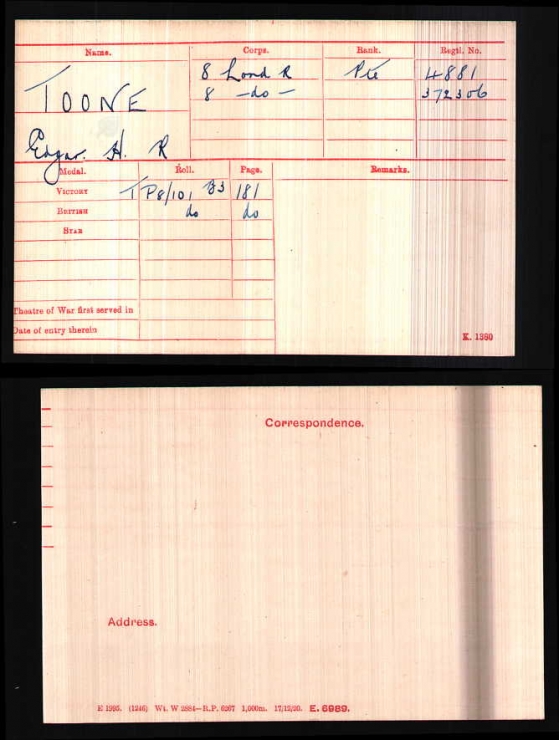 Name. Corps. Rank. Regtl. No.
TOONE 8 Lond R Pte 4881
8 -do- 372306
Edgar. H. R
Medal. Roll. Page. Remarks.
VICTORY TP8/101 B3 181
BRITISH do do
STAR
Theatre of War first served in
Date of entry therein
K. 1380
Correspondence.
Address.
E 1995. (1246) Wt. W 2884—R.P. 6267 1,000m. 17/12/20. E. 6989.